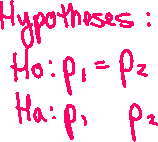 Hypotheses:
Ho: p₁ = p₂
Ha: p₁ p₂